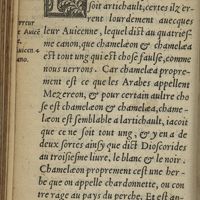 soit artichault, certes ilz er-
rent lourdement auecques
leur Auicenne, lequel dist au quatries-
me canon, que chamelæon & chamelæa
est tout ung qui est chose faulse, comme
nous uerrons. Car chamelæa propre-
ment est ce que les Arabes appellent
Mezereon, & pour certain aultre cho
se est chamelæon & chamelæa, chame-
læon est semblable a lartichault, tacoit
que ce ne soit tout ung, & y en a de
deux sortes ainsy que dict Dioscorides
au troisiesme liure, le blanc & le noir.
Chamelæon proprement cest une her-
be que on appelle chardonnette, ou con
tre rage au pays du perche. Et est au-
rreur
e Auicē
e.
uicen. 4
ano.